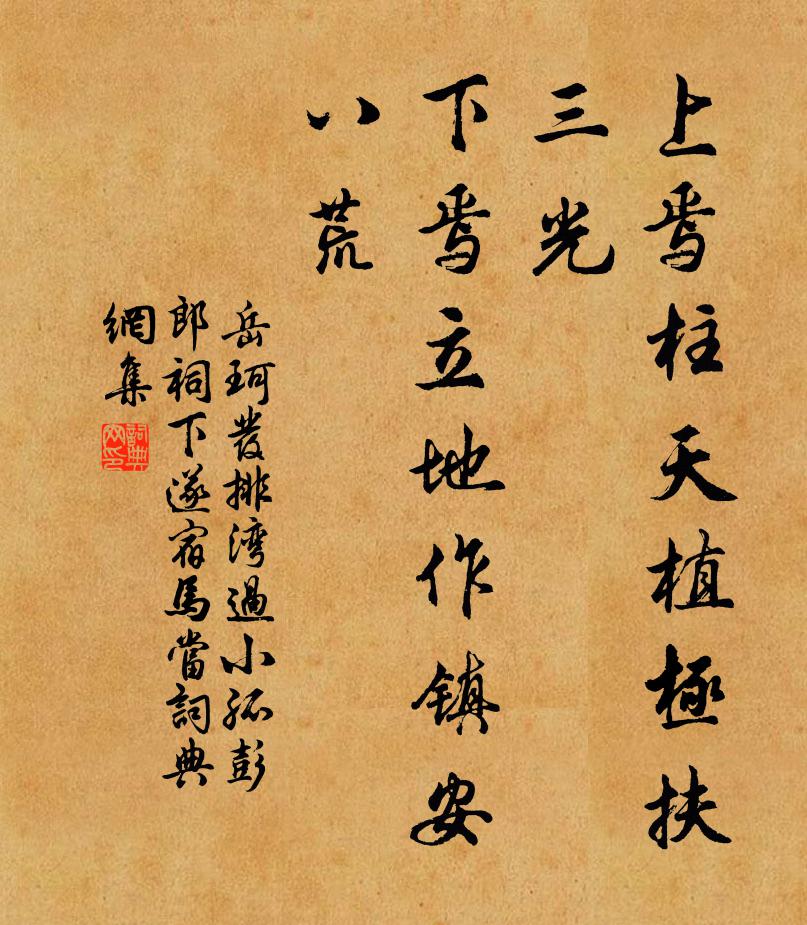 上焉柱天植極扶
三光
下焉立地作鎮安
八荒
岳珂發排湾過小孤彭
郎祠下遂宿馬當詞典
網集
詞典
网印